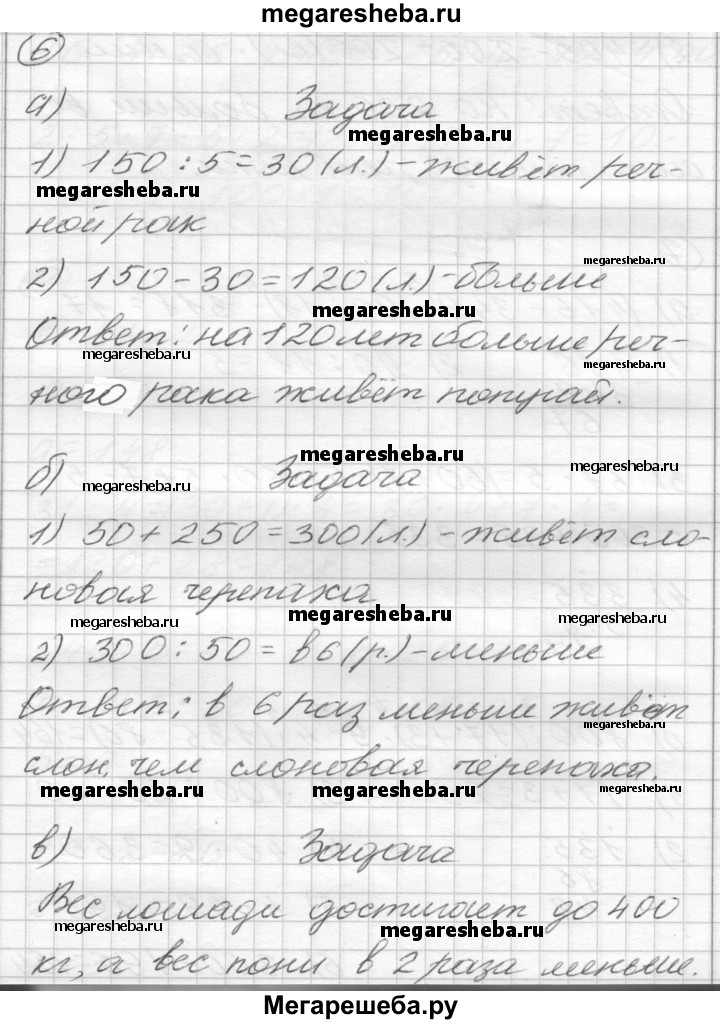 megaresheba.ru
6
а) Задача
megaresheba.ru
1) 150 : 5 = 30 (л.) - живёт реч-
megaresheba.ru
ной рак
megaresheba.ru
2) 150 - 30 = 120 (л.) - больше
megaresheba.ru
Ответ: на 120 лет больше реч-
megaresheba.ru megaresheba.ru
ного рака живёт попугай.
megaresheba.ru megaresheba.ru
б) Задача
megaresheba.ru
1) 50 + 250 = 300 (л.) - живёт сло-
новая черепаха
megaresheba.ru megaresheba.ru megaresheba.ru
2) 300 : 50 = в 6 (р.) - меньше
Ответ: в 6 раз меньше живёт
megaresheba.ru
слон, чем слоновая черепаха.
megaresheba.ru megaresheba.ru megaresheba.ru
в) Задача
Вес лошади достигает до 400
megaresheba.ru megaresheba.ru
кг, а вес пони в 2 раза меньше.
Мегарешеба.ру